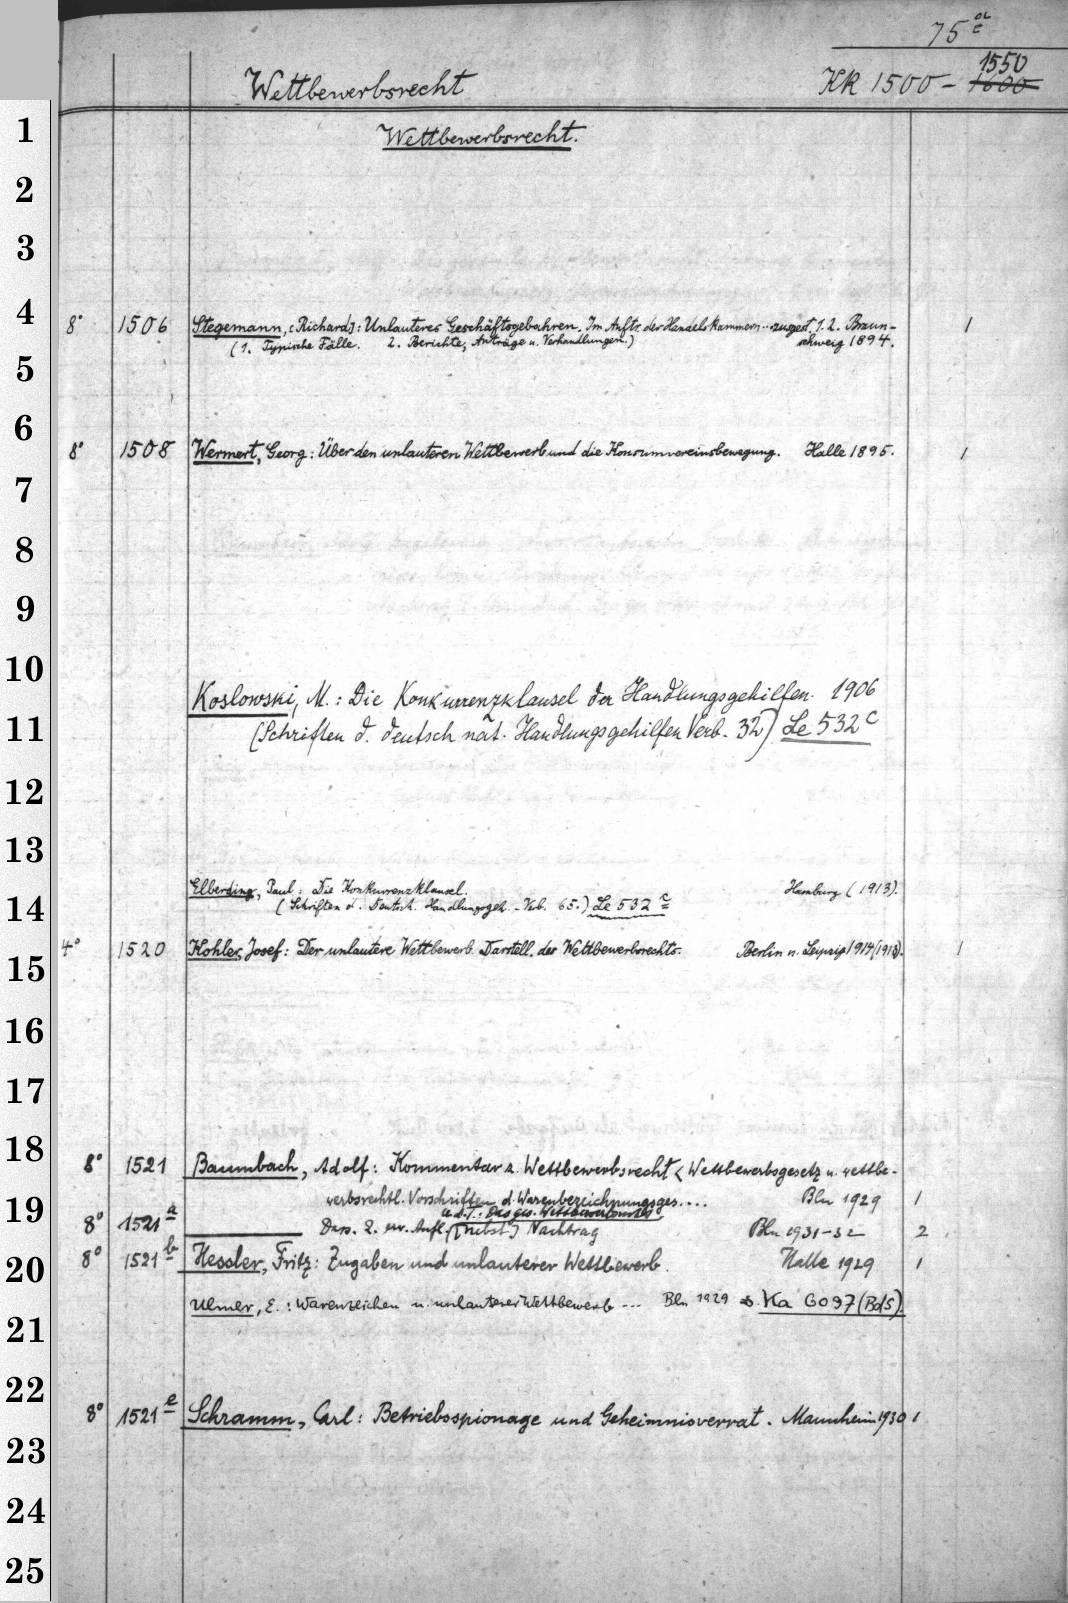 75
1550
Wettbewerbsrecht KK 1500 - 1600
1 Wettbewerbsrecht.
2
3
4 8° 1506 Stegemann, [Richard]: Unlauteres Geschäftsgebahren. Im Auftr. der Handelskammern... 1.2. Braun- 1
(1. Typische Fälle. 2. Berichte, Anträge u. Verhandlungen.) schweig 1894.
5
6 8° 1508 Wermert, Georg: Über den unlauteren Wettbewerb und die Konsumvereinsbewegung. Halle 1895. 1
7
8
9
10 Koslowski, M.: Die Konkurrenzklausel der Handlungsgehilfen. 1906
11 (Schriften d. deutsch nat. Handlungsgehilfen Verb. 32) Le 532 c
12
13
Elberding, Paul: Die Konkurrenzklausel. Hamburg (1913).
14 (Schriften d. Deutsch. Handlungsgeh.-Verb. 65.) Le 532 c
15 4° 1520 Kohler, Josef: Der unlautere Wettbewerb. Darstell. des Wettbewerbsrechts. Berlin u. Leipzig 1914(1913). 1
16
17
18 8° 1521 Baumbach, Adolf: Kommentar z. Wettbewerbsrecht < Wettbewerbsgesetz u. wettbe-
19 werbsrechtl. Vorschriften d. Warenbezeichnungsges.... Bln 1929 1
u.d.T.: Das ges. Wettbewerbsrecht
8° 1521 a ——— Dass. 2. erw. Aufl. [nebst] Nachtrag Bln 1931-32 2
20 8° 1521 b Hessler, Fritz: Zugaben und unlauterer Wettbewerb. Halle 1929 1
Ulmer, E.: Warenzeichen u. unlauterer Wettbewerb --- Bln 1929 s. Ka 6097 (Bd5).
21
22 8° 1521 e Schramm, Carl: Betriebsspionage und Geheimnisverrat. Mannheim 1930 1
23
24
25